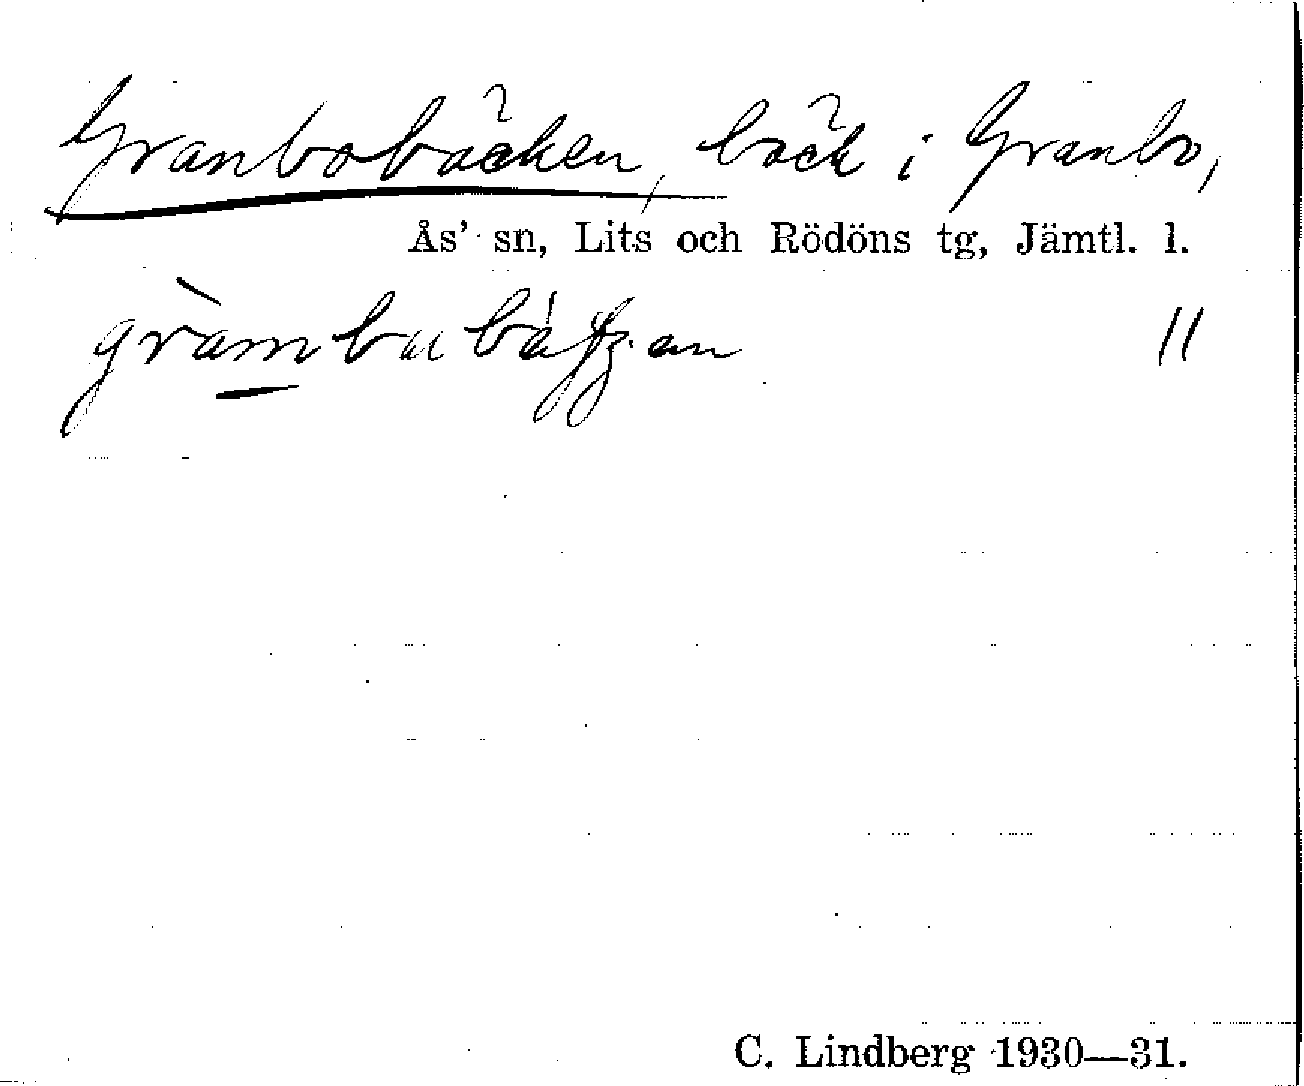 Granbobäcken, bäck i Granbo,
Ås' sn, Lits och Rödöns tg, Jämtl. l.
11
C. Lindberg 1930—31.